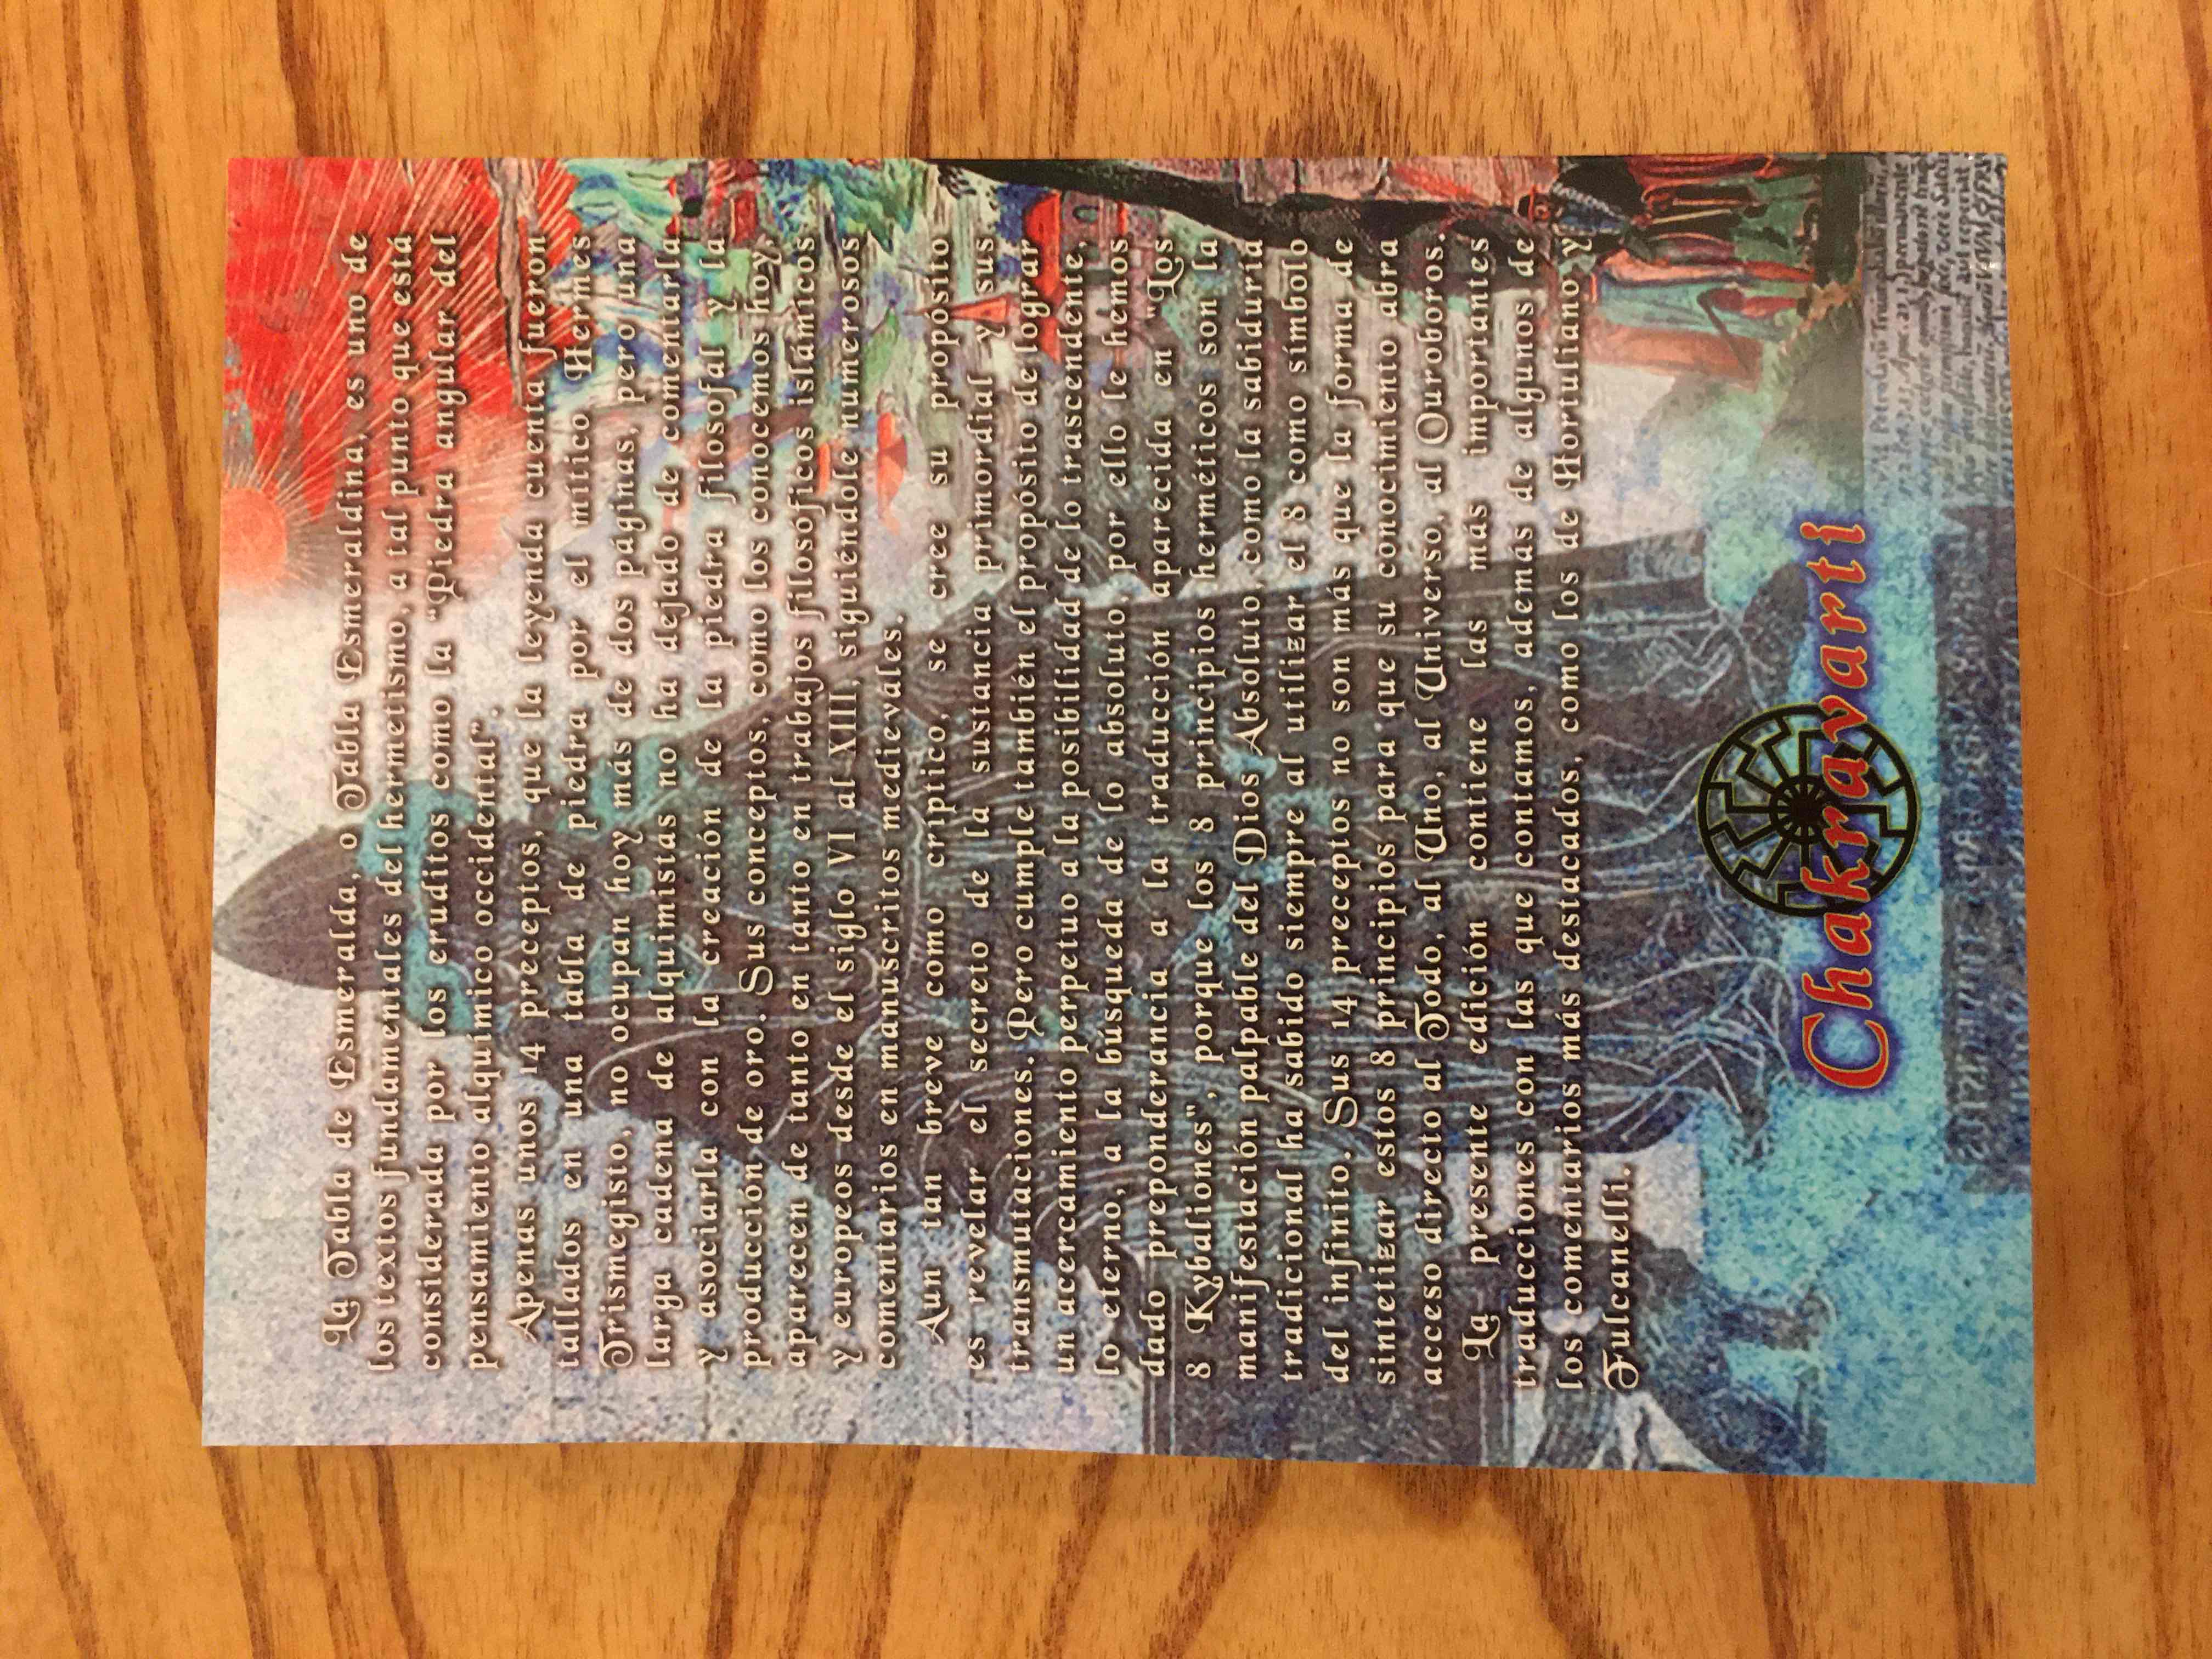 La Tabla de Esmeralda, o Tabla Esmeraldina, es uno de
los textos fundamentales del hermetismo, a tal punto que está
considerada por los eruditos como la "Piedra angular del
pensamiento alquímico occidental".
Apenas unos 14 preceptos, que la leyenda cuenta fueron
tallados en una tabla de piedra por el mítico Hermes
Trismegisto, no ocupan hoy más de dos páginas, pero una
larga cadena de alquimistas no ha dejado de comentarla
y asociarla con la creación de la piedra filosofal y la
producción de oro. Sus conceptos, como los conocemos hoy,
aparecen de tanto en tanto en trabajos filosóficos islámicos
y europeos desde el siglo VI al XIII, siguiéndole numerosos
comentarios en manuscritos medievales.
Aun tan breve como críptico, se cree su propósito
es revelar el secreto de la sustancia primordial y sus
transmutaciones. Pero cumple también el propósito de lograr
un acercamiento perpetuo a la posibilidad de lo trascendente,
lo eterno, a la búsqueda de lo absoluto, por ello le hemos
dado preponderancia a la traducción aparecida en "Los
8 Kybaliones", porque los 8 principios herméticos son la
manifestación palpable del Dios Absoluto, como la sabiduría
tradicional ha sabido siempre al utilizar el 8 como símbolo
del infinito. Sus 14 preceptos no son más que la forma de
sintetizar estos 8 principios para que su conocimiento abra
acceso directo al Todo, al Uno, al Universo, al Ouroboros.
La presente edición contiene las más importantes
traducciones con las que contamos, además de algunos de
los comentarios más destacados, como los de Hortuliano y
Fulcanelli.
Chakravarti